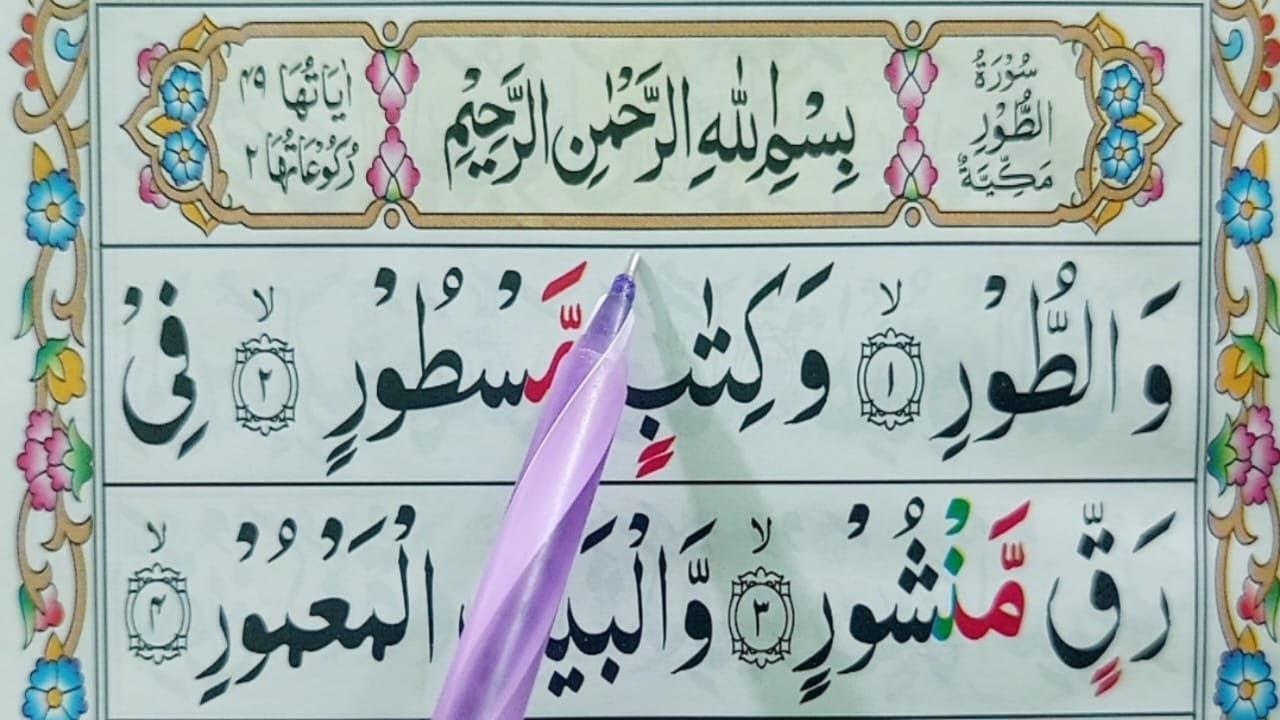 سُوْرَةُ
الطُّوْرِ
مَكِّيَّةٌ
بِسْمِ اللّٰهِ الرَّحْمٰنِ الرَّحِيْمِ
اٰيَاتُهَا ۴۹
رُكُوْعَاتُهَا ۲
وَالطُّوْرِ ۙ ۱ وَكِتٰبٍ مَّسْطُوْرٍ ۙ ۲ فِیْ
رَقٍّ مَّنْشُوْرٍ ۙ ۳ وَّالْبَيْتِ الْمَعْمُوْرِ ۙ ۴